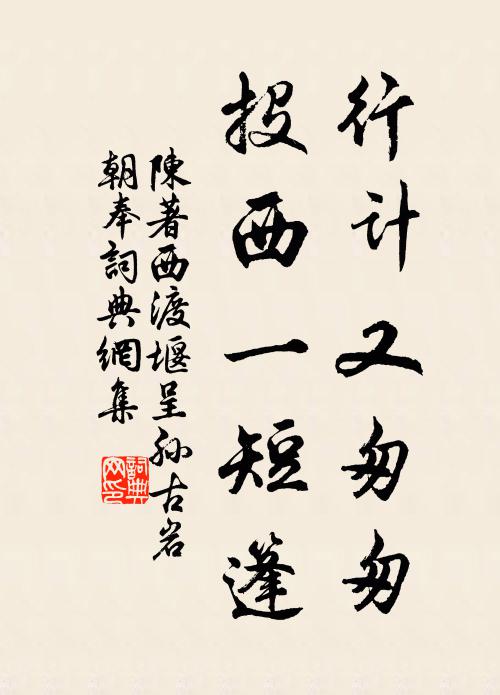 行计又匆匆
投西一短篷
陳著西渡堰呈孙古岩
朝奉詞典網集
詞典
网印